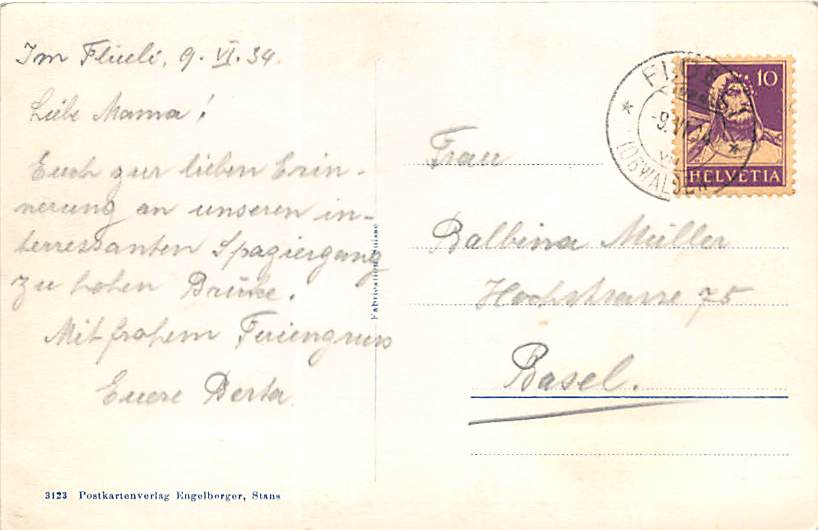 Im Flüeli, 9. VI. 34.
Liebe Mama!
Euch zur lieben Erin-
nerung an unseren in-
terressanten Spaziergang
zu hohen Brücke.
Mit frohem Feriengruss
Euere Berta
3123 Postkartenverlag Engelberger, Stans
Fabrication Suisse
(OBWALDEN)
10
HELVETIA
Frau
Balbina Müller
Hochstrasse 75
Basel.